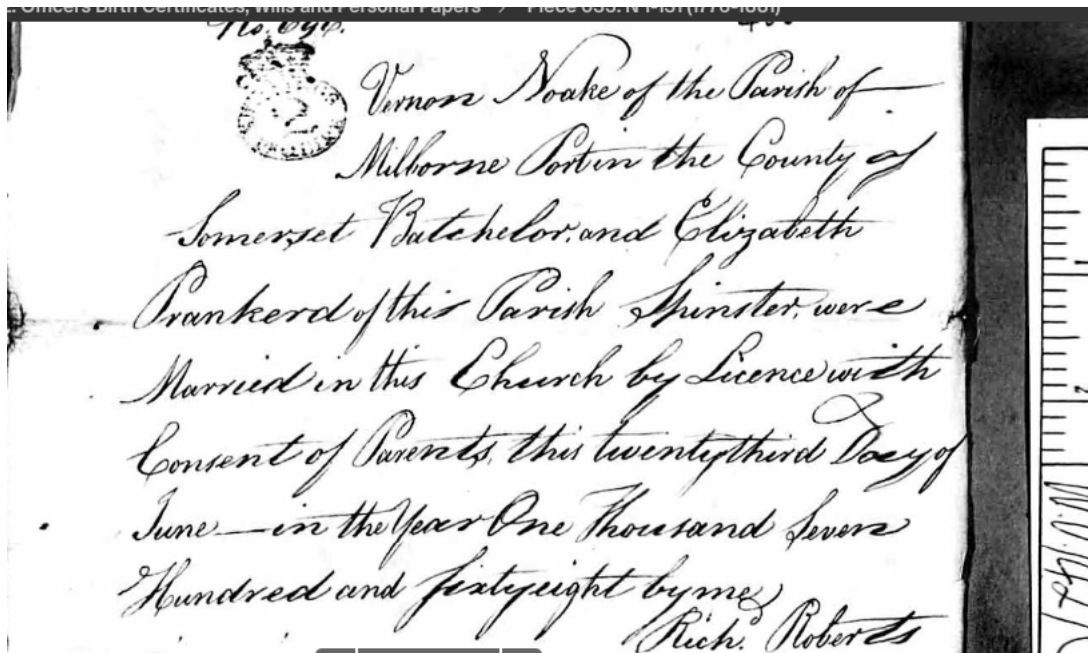 Officers Birth Certificates, Wills and Personal Papers > Piece 035: N 1-151 (1776-1881)
No. 696.
2
Vernon Noake of the Parish of
Milborne Port in the County of
Somerset Batchelor, and Elizabeth
Prankerd of this Parish Spinster, were
Married in this Church by Licence with
Consent of Parents, this twentythird Day of
June — in the Year One Thousand Seven
Hundred and sixtyeight by me
Richd. Roberts